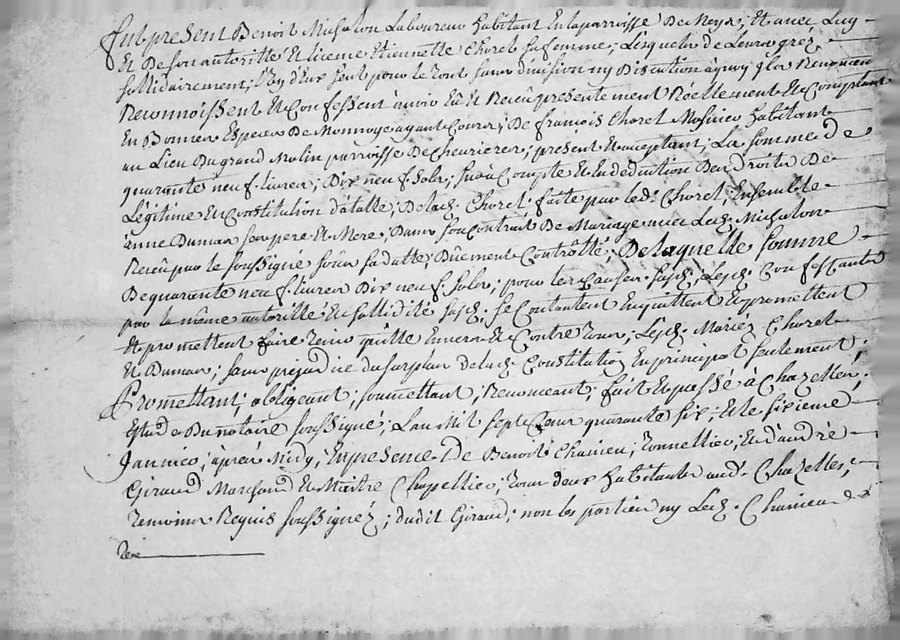 fut present Benoit Michalon Laboureur habitant En la parroisse De Neyx, Et avec Luy
Et De son autoritté Et licence Etiennette Choret sa femme; Lesquels de Leurs gréz
sollidairement; l'un d'Eux seul pour le Tout sans division ny Discution à quoy ont Renoncés
Reconnoissent Et Confessent avoir Eu Et Receu presentement Réellement Et Comptant
En Bonnes Especes De Monnoye ayant Cours; De françois Choret Mosnier habitant
au Lieu Du grand Molin parroisse De Chevrieres; present Et acceptant; La somme de
quarante neuf livres; Dix neuf sols; Et à Compte Et En deduction Des Droits De
Légitime En Constitution d'atelle; De lad. Choret faitte par led. Choret; Ensemble
anne Dumas ses pere Et Mere; Dans son Contrat De Mariage avec Led. Michalon
Receu par le soussigné sous sa datte; Dûement Controllé; De laquelle somme
De quarante neuf livres Dix neuf sols; pour les Causes susd. Lesd. Confessants
par la même autorité Et sollidité susd. se Contantent En quittent Et promettent
Et promettent faire Tenir quitte Envers Et Contre Tous; Lesd. Mariéz Choret
Et Dumas; sans prejudice du surplus De lad. Constitution En principal seulement;
Promettant; obligeant; soumettant; Renonceant; fait Et passé à Chazelles;
Etude Du notaire soussigné; L'an Mil sept Cens quarante six; Et le sixieme
Janvier; apres Midy; En presence De Benoit Chaineu; Tonnellier; Et d'andré
Giraud Marchand Et Maitre Chapellier; Tous deux habitants aud. Chazelles;
Temoins Requis soussignéz; dudit Giraud; non les parties ny Led. Chaineu